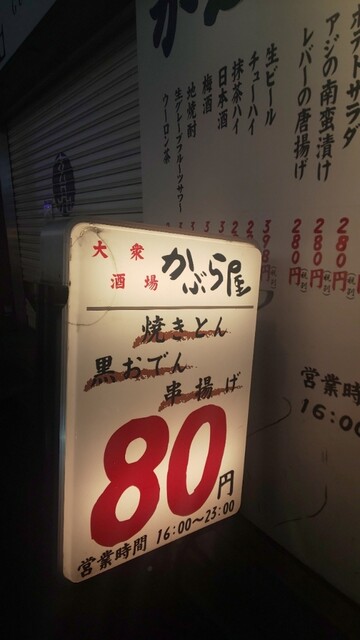 ポテトサラダ
アジの南蛮漬け
レバーの唐揚げ
生ビール
チューハイ
抹茶ハイ
日本酒
梅酒
地焼酎
生グレープフルーツサワー
ウーロン茶
398円(税別)
280円(税別)
280円(税別)
280
営業時
16:00
大衆
酒場
かぶら屋
焼きとん
黒おでん
串揚げ
80円
営業時間 16:00～23:00